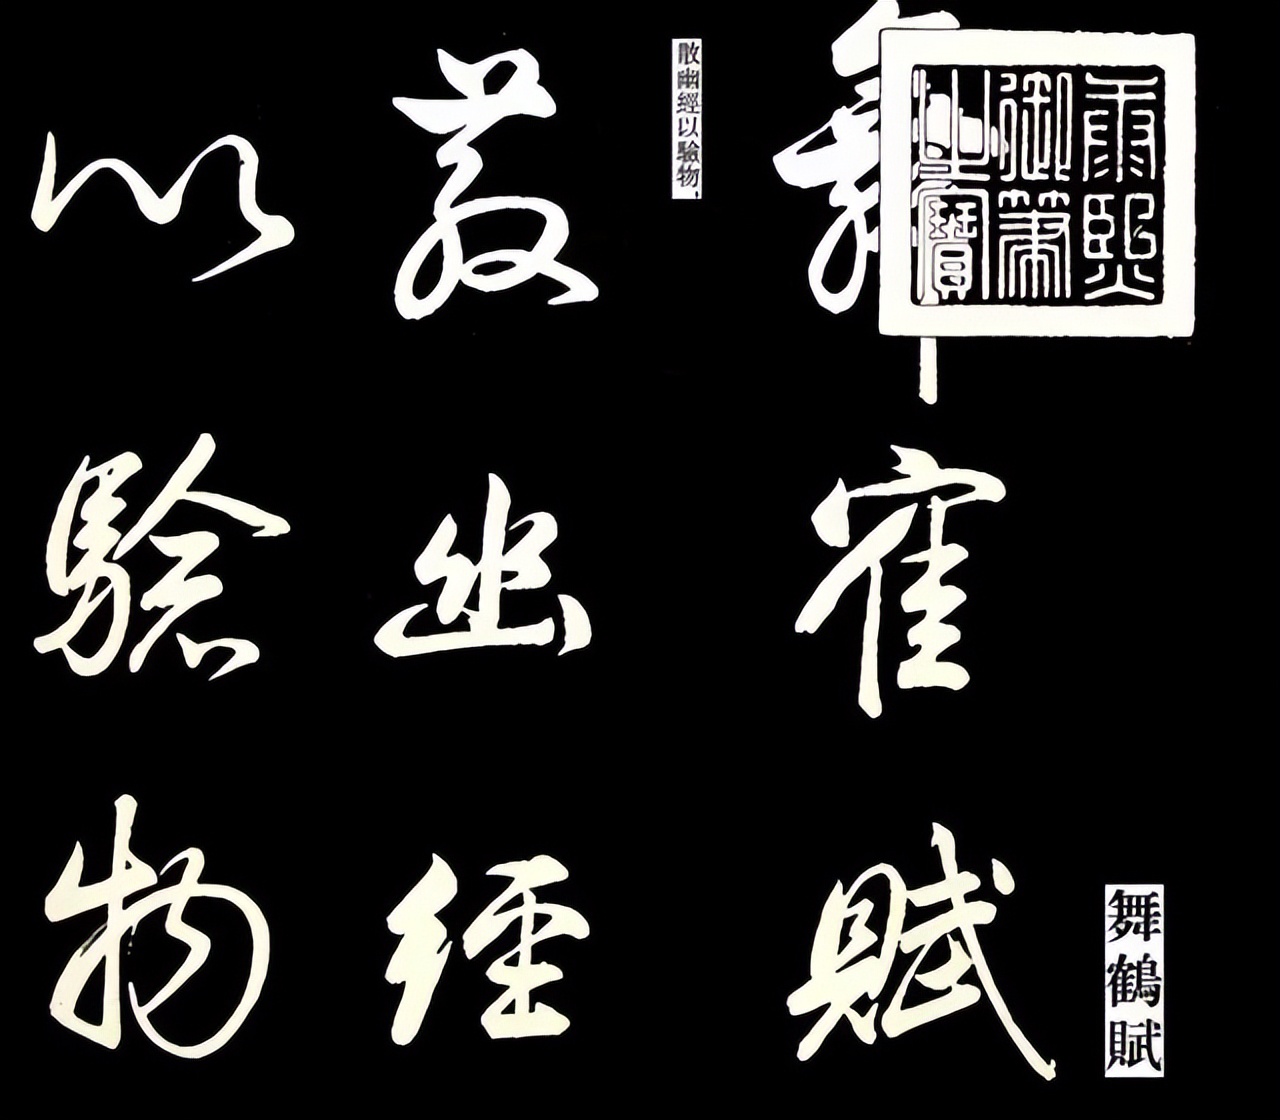 舞鶴賦
康熙
御筆
之寶
舞寉賦
散幽經以驗物，
散幽經
以驗物